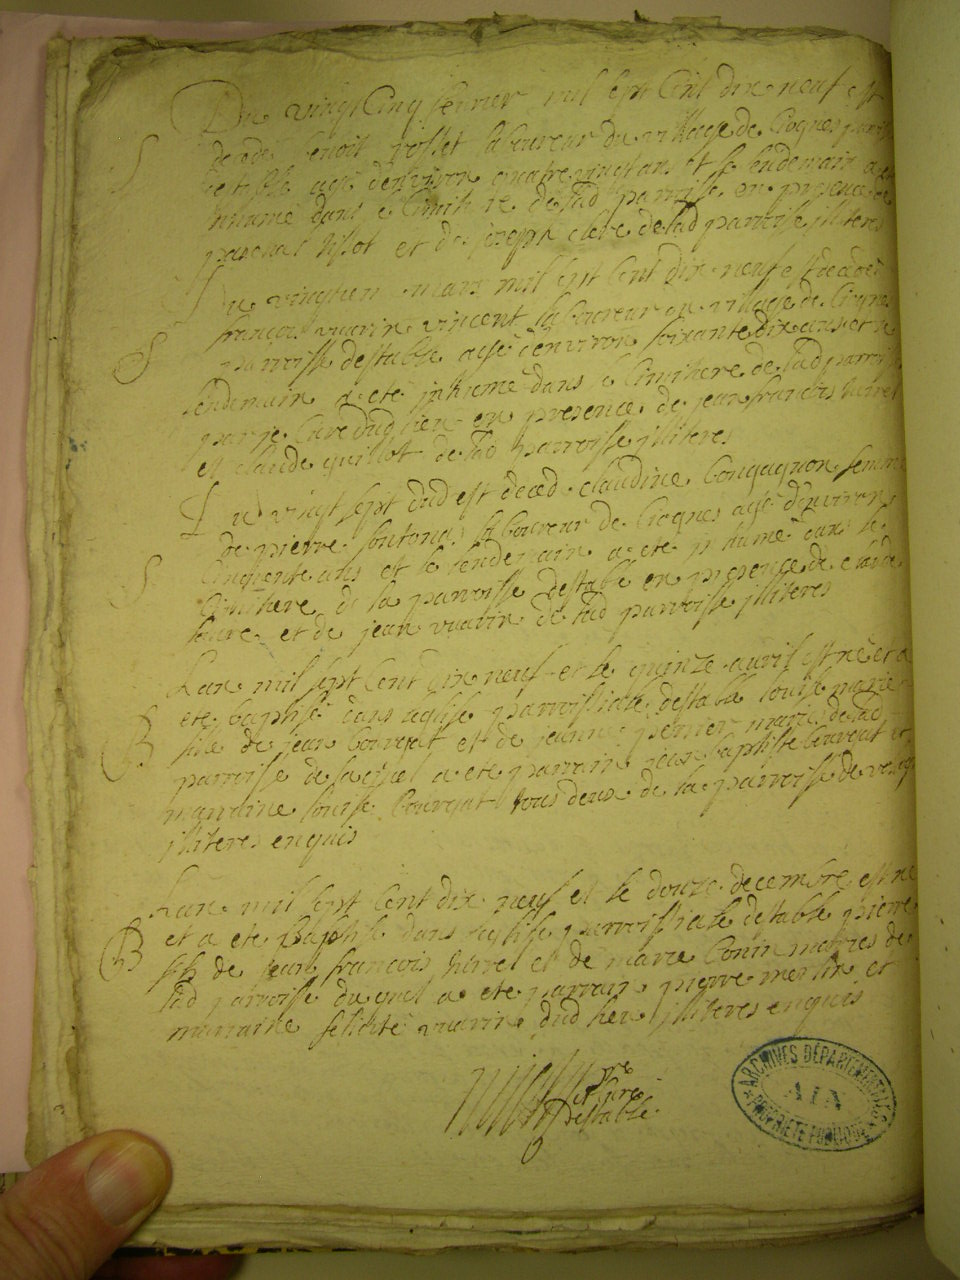 Du vingt Cinq fevrier mil sept Cent dix neuf est
S
decede benoit rosset laboureur du village de Crognes
agé denviron quatre vingt ans et le lendemain a
inhumé dans le Cimitiere de lad parroisse en presence de
et de joseph clere de lad parroisse jlliteres
Du vingtiem mars mil sept Cent dix neuf est decedé
S
francois vuarin vincent laboureur du village de Crognes
parroisse destable agé denviron soixante dix ans et le
lendemain a eté jnhumé dans le Cimithere de lad parroisse
par je Curé dud lieu en presence de jean francois hirret
et claude guillot de lad parroisse jlliteres
Du vingt sept dud est deced claudine femme
de pierre laboureur de Crognes agé denviron
S
Cinquente ans et le lendemain a eté jnhumé dans le
Cimithere de la parroisse destable en presence de claude
et de jean vuarin de lad parroisse jlliteres
Lan mil sept Cent dix neuf et le quinze avril est né et a
eté baptisé dans leglise parroissiale destable louise marie
B
fille de jean Convert et de jeanne pernier mariés de lad
parroisse de laquel a eté parrain jean baptiste Convert et
marraine louise Convert tous deux de la parroisse de
jlliteres enquis
Lan mil sept Cent dix neuf et le douze decembre est né
B
et a eté Baptisé dans leglise parroissiale destable pierre
fils de jean francois hirret et de marie Conin mariés de
lad parroisse duquel a eté parrain pierre merlin et
marraine felicité vuarin dud lieu jlliteres enquis
ptre
et Curé
Destable
ARCHIVES DÉPARTEMENTALES
AIN
PROPRIÉTÉ PUBLIQUE